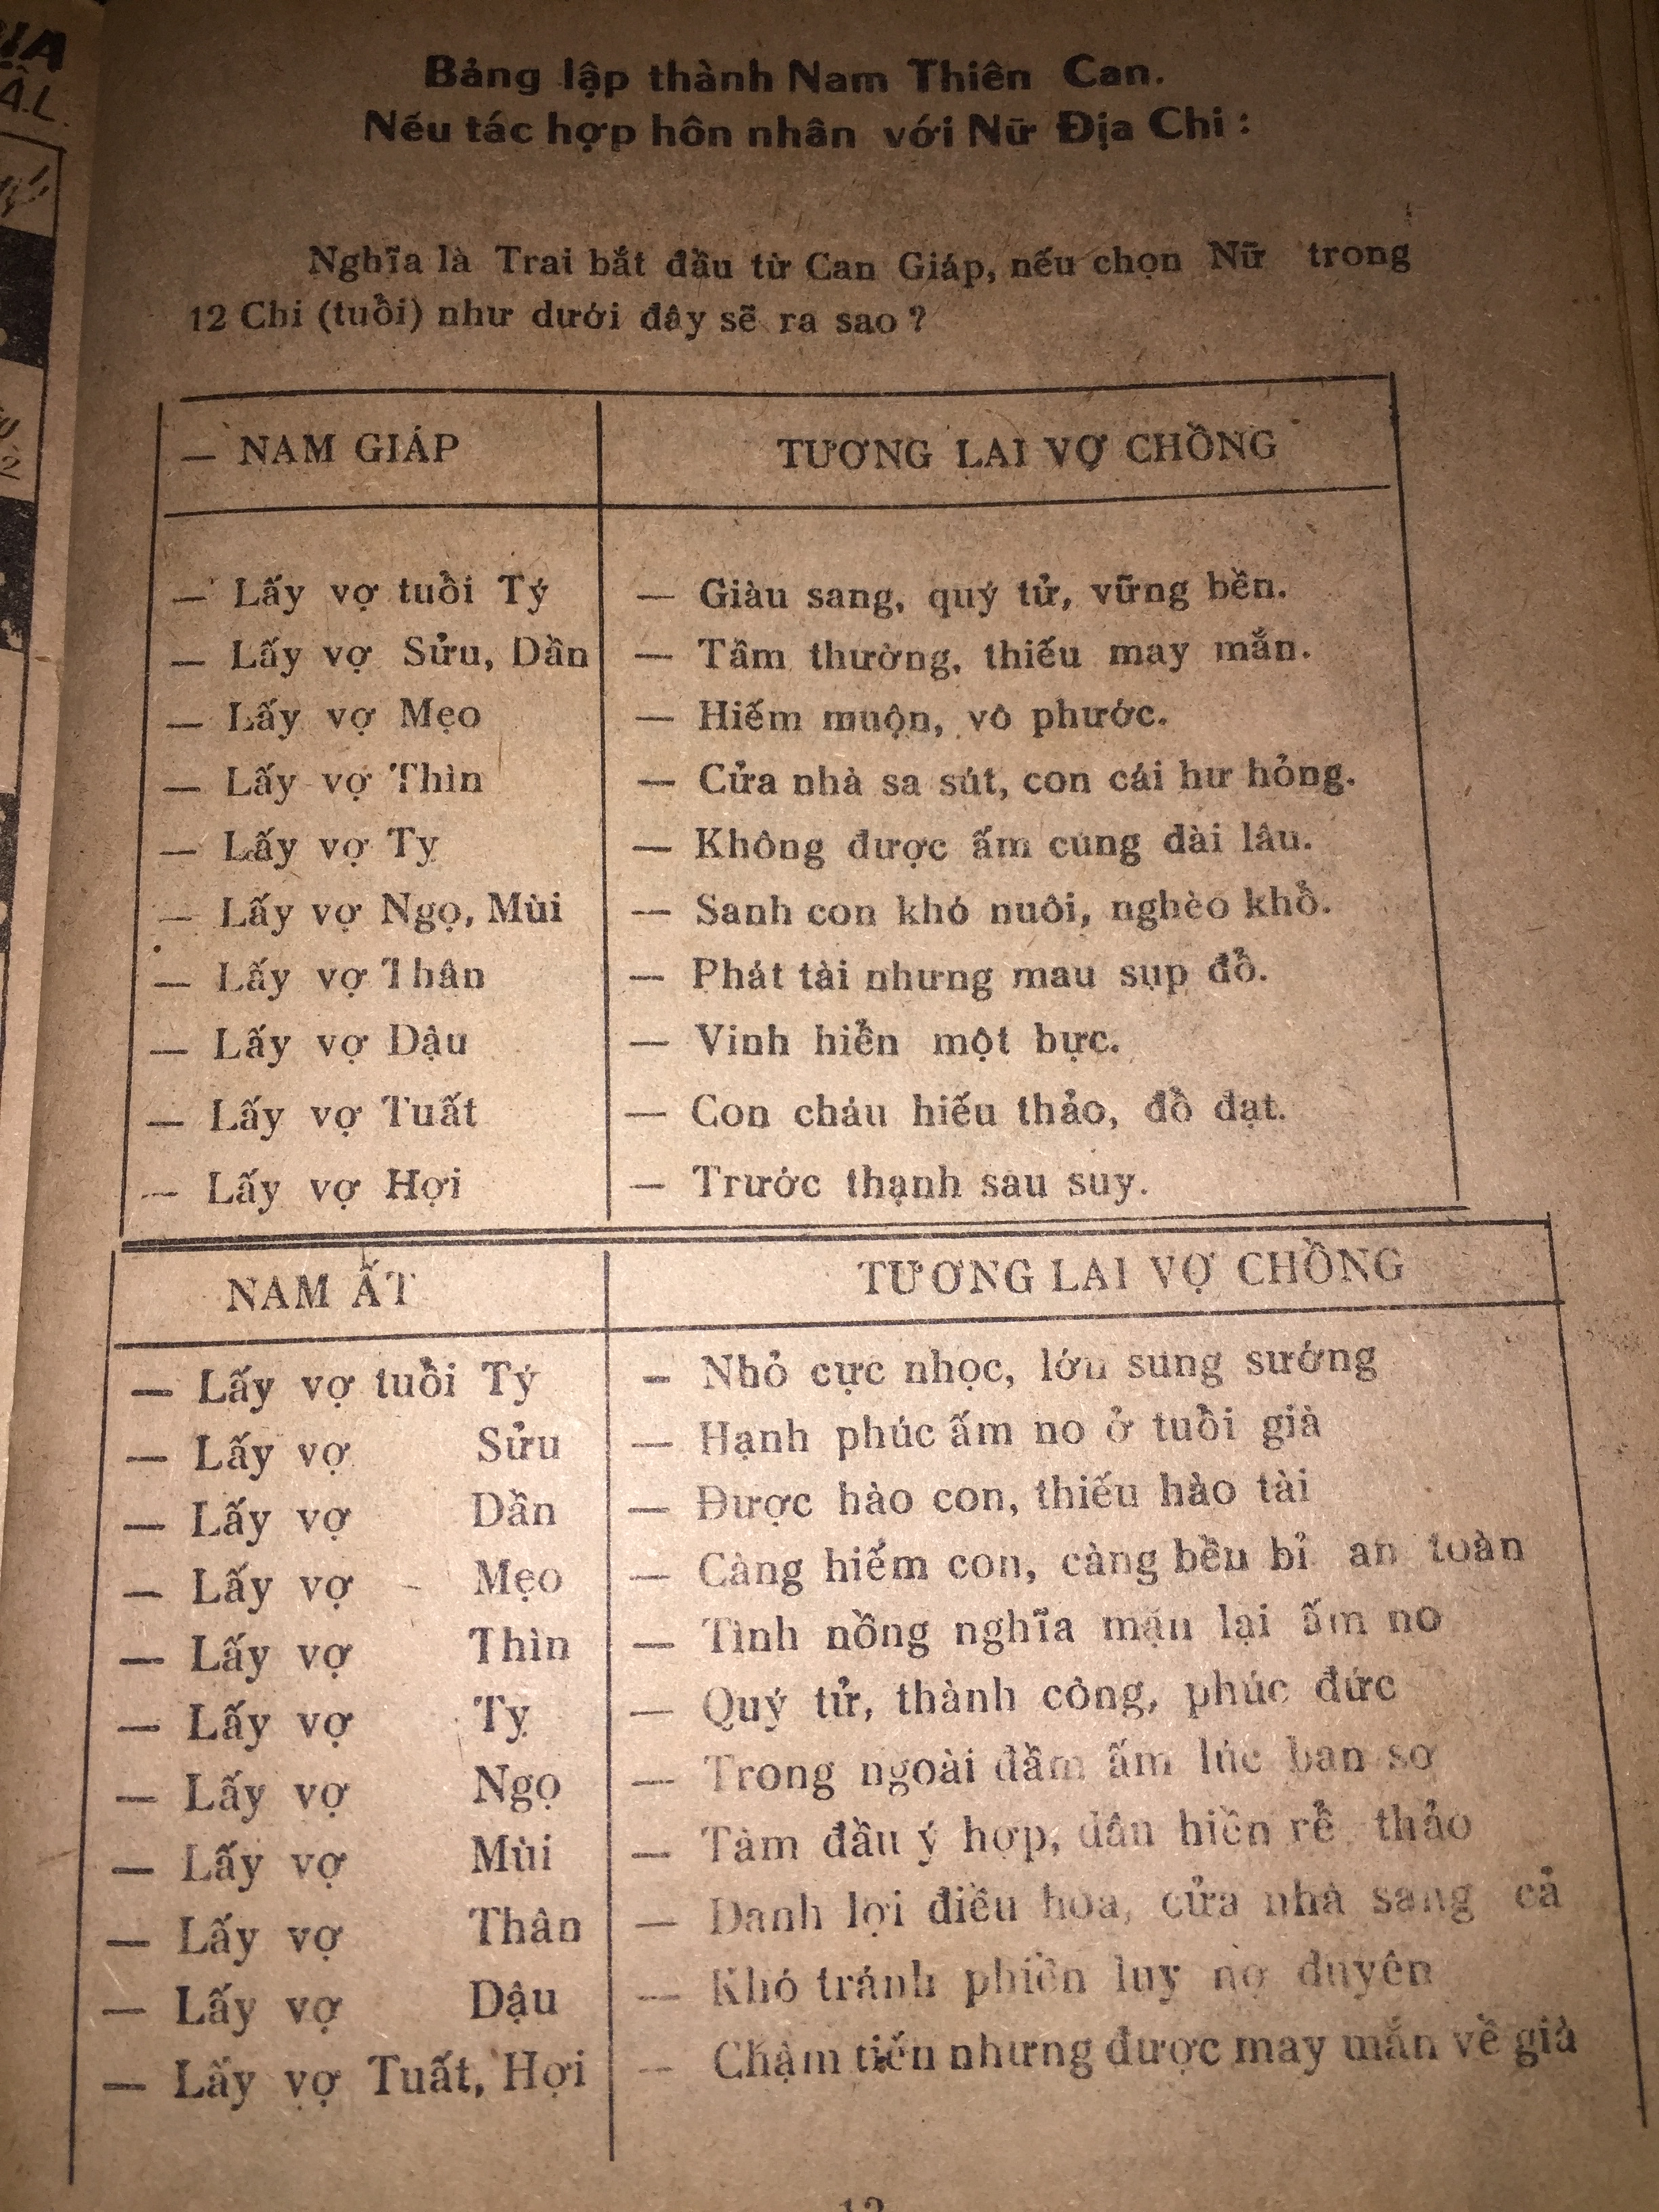 Bảng lập thành Nam Thiên Can.
Nếu tác hợp hôn nhân với Nữ Địa Chi :
Nghĩa là Trai bắt đầu từ Can Giáp, nếu chọn Nữ trong
12 Chi (tuổi) như dưới đây sẽ ra sao ?
— NAM GIÁP TƯƠNG LAI VỢ CHỒNG
— Lấy vợ tuổi Tý — Giàu sang, quý tử, vững bền.
— Lấy vợ Sửu, Dần — Tầm thường, thiếu may mắn.
— Lấy vợ Mẹo — Hiếm muộn, vô phước.
— Lấy vợ Thìn — Cửa nhà sa sút, con cái hư hỏng.
— Lấy vợ Tỵ — Không được ấm cúng dài lâu.
— Lấy vợ Ngọ, Mùi — Sanh con khó nuôi, nghèo khổ.
— Lấy vợ Thân — Phát tài nhưng mau sụp đổ.
— Lấy vợ Dậu — Vinh hiển một bực.
— Lấy vợ Tuất — Con cháu hiếu thảo, đỗ đạt.
— Lấy vợ Hợi — Trước thạnh sau suy.
NAM ẤT TƯƠNG LAI VỢ CHỒNG
— Lấy vợ tuổi Tý — Nhỏ cực nhọc, lớn sung sướng
— Lấy vợ Sửu — Hạnh phúc ấm no ở tuổi già
— Lấy vợ Dần — Được hào con, thiếu hào tài
— Lấy vợ Mẹo — Càng hiếm con, càng bền bỉ an toàn
— Lấy vợ Thìn — Tình nồng nghĩa mặn lại ấm no
— Lấy vợ Tỵ — Quý tử, thành công, phúc đức
— Lấy vợ Ngọ — Trong ngoài đầm ấm lúc ban sơ
— Lấy vợ Mùi — Tâm đầu ý hợp, dâu hiền rể thảo
— Lấy vợ Thân — Danh lợi điều hòa, cửa nhà sang cả
— Lấy vợ Dậu — Khó tránh phiền lụy nợ duyên
— Lấy vợ Tuất, Hợi — Chậm tiến nhưng được may mắn về già